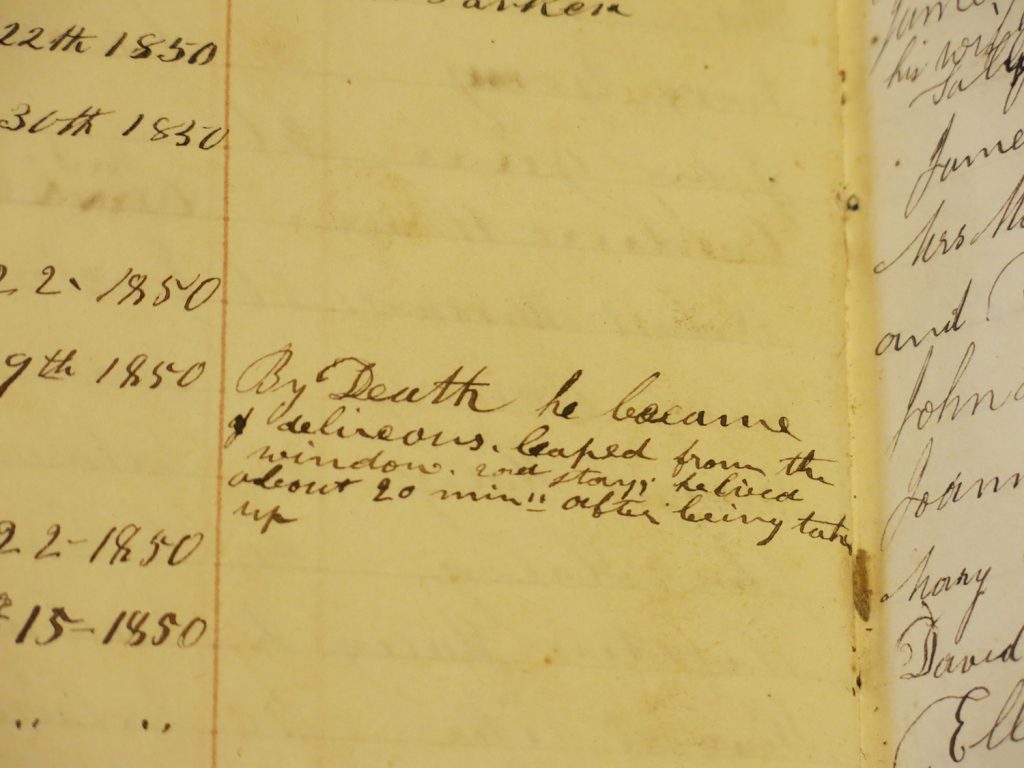 Parker
22th 1850
30th 1850
22- 1850
9th 1850
By Death he became
& delireous. leaped from the
window. 2nd story; he lived
about 20 min" after being taken
up
22-1850
15-1850
" "
James,
his wife
Sally
James
Mrs M
and
John
Joann
Mary
David
Ell